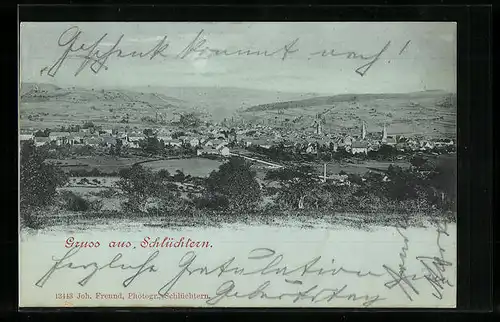 Geschenk kommt nach!
Gruss aus Schlüchtern.
Herzliche Gratulation
Geburtstag
13443 Joh. Freund, Photogr., Schlüchtern